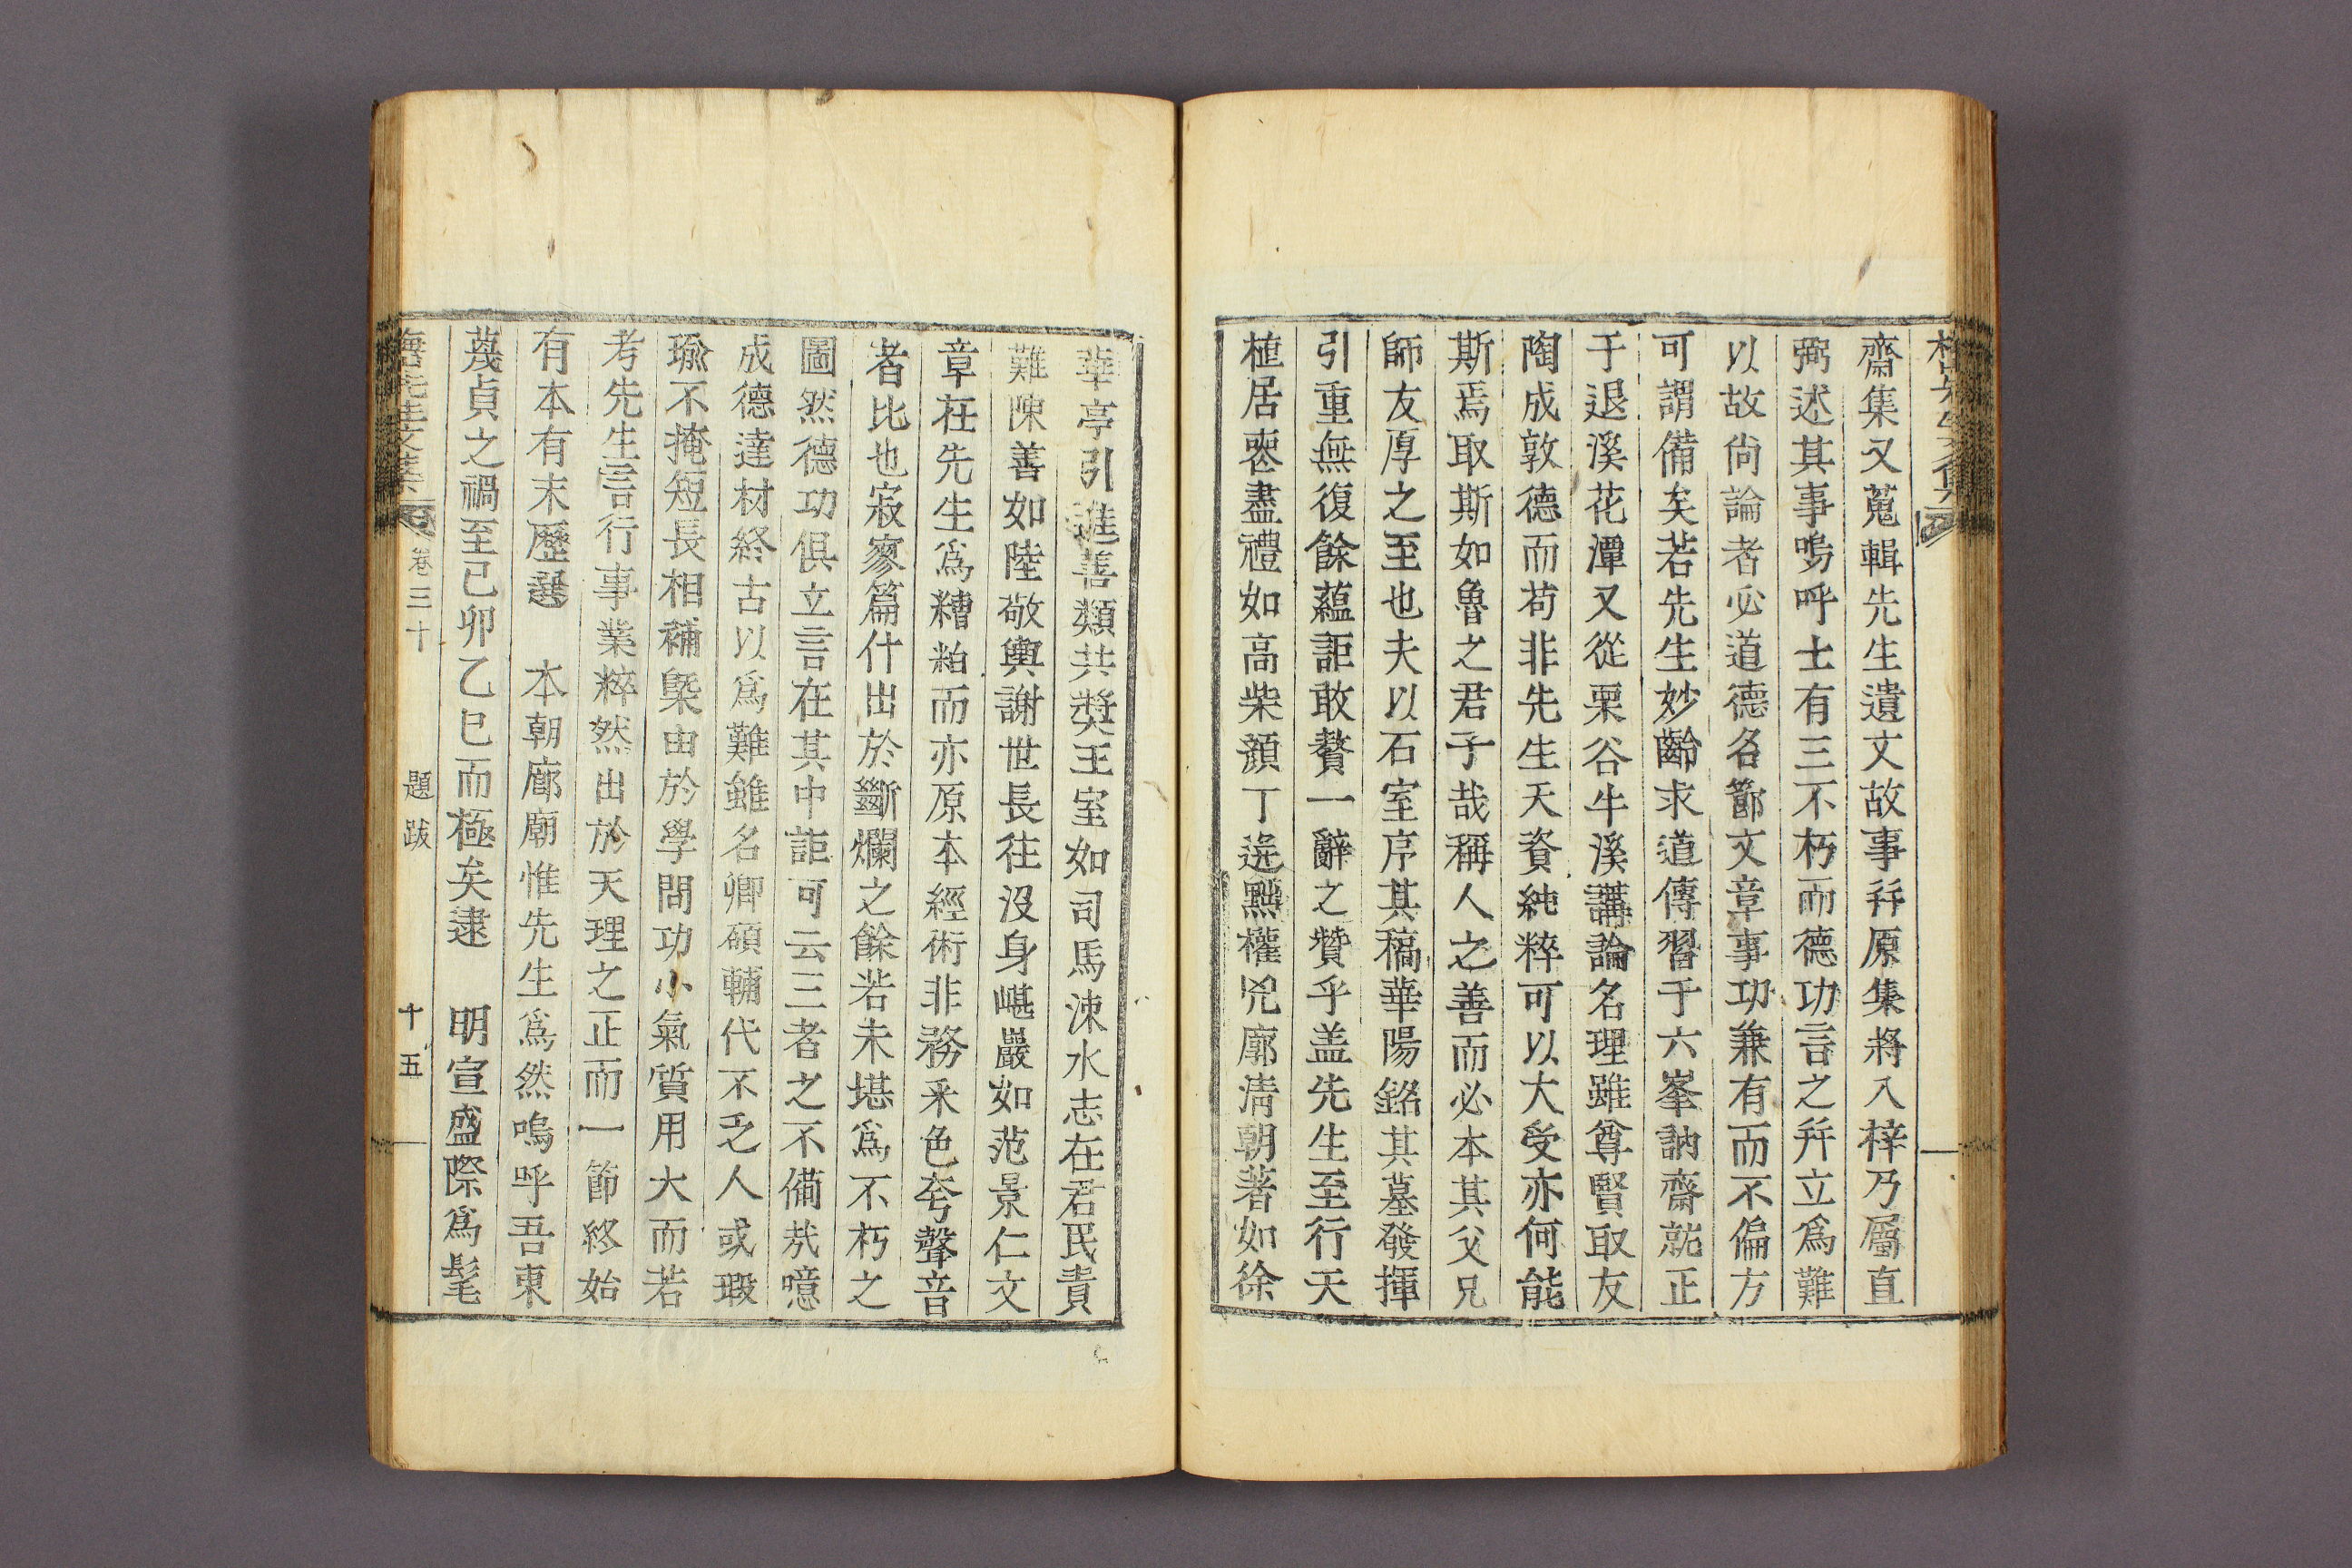 齋集又蒐輯先生遺文故事幷原集將入梓乃屬直
弼述其事嗚呼士有三不朽而德功言之幷立爲難
以故尙論者必道德名節文章事功兼有而不偏方
可謂備矣若先生妙齡求道傳習于六峯訥齋就正
于退溪花潭又從栗谷牛溪講論名理雖尊賢取友
陶成敦德而苟非先生天資純粹可以大受亦何能
斯焉取斯如魯之君子哉稱人之善而必本其父兄
師友厚之至也夫以石室序其稿華陽銘其墓發揮
引重無復餘蘊詎敢贅一辭之贊乎盖先生至行天
植居喪盡禮如高柴顔丁逬黜權兇廓淸朝著如徐
華亭引進善類共奬王室如司馬涑水志在君民責
難陳善如陸敬輿謝世長往沒身嵁巖如范景仁文
章在先生爲糟粕而亦原本經術非務釆色夸聲音
者比也寂寥篇什出於斷爛之餘若未堪爲不朽之
圖然德功俱立言在其中詎可云三者之不備哉噫
成德達材終古以爲難雖名卿碩輔代不乏人或瑕
瑜不掩短長相補槩由於學問功小氣質用大而若
考先生言行事業粹然出於天理之正而一節終始
有本有末歷選 本朝廊廟惟先生爲然嗚呼吾東
蔑貞之禍至己卯乙巳而極矣逮 明宣盛際爲髦
卷三十 題跋 十五